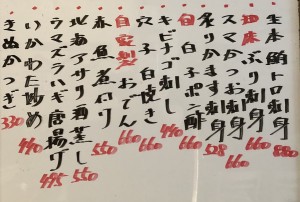 生本鮪トロ刺身 880
知床ぶり刺身 660
スマかつお刺身 660
炙りかます刺身 528
白子ポン酢
キビナゴ刺し 440
穴子白焼き 660
自家製おでん 660
春魚煮付
北海アサリ酒蒸し 550
ウマズラハギ唐揚げ 495
いかわた炒め 440
きぬかつぎ 330